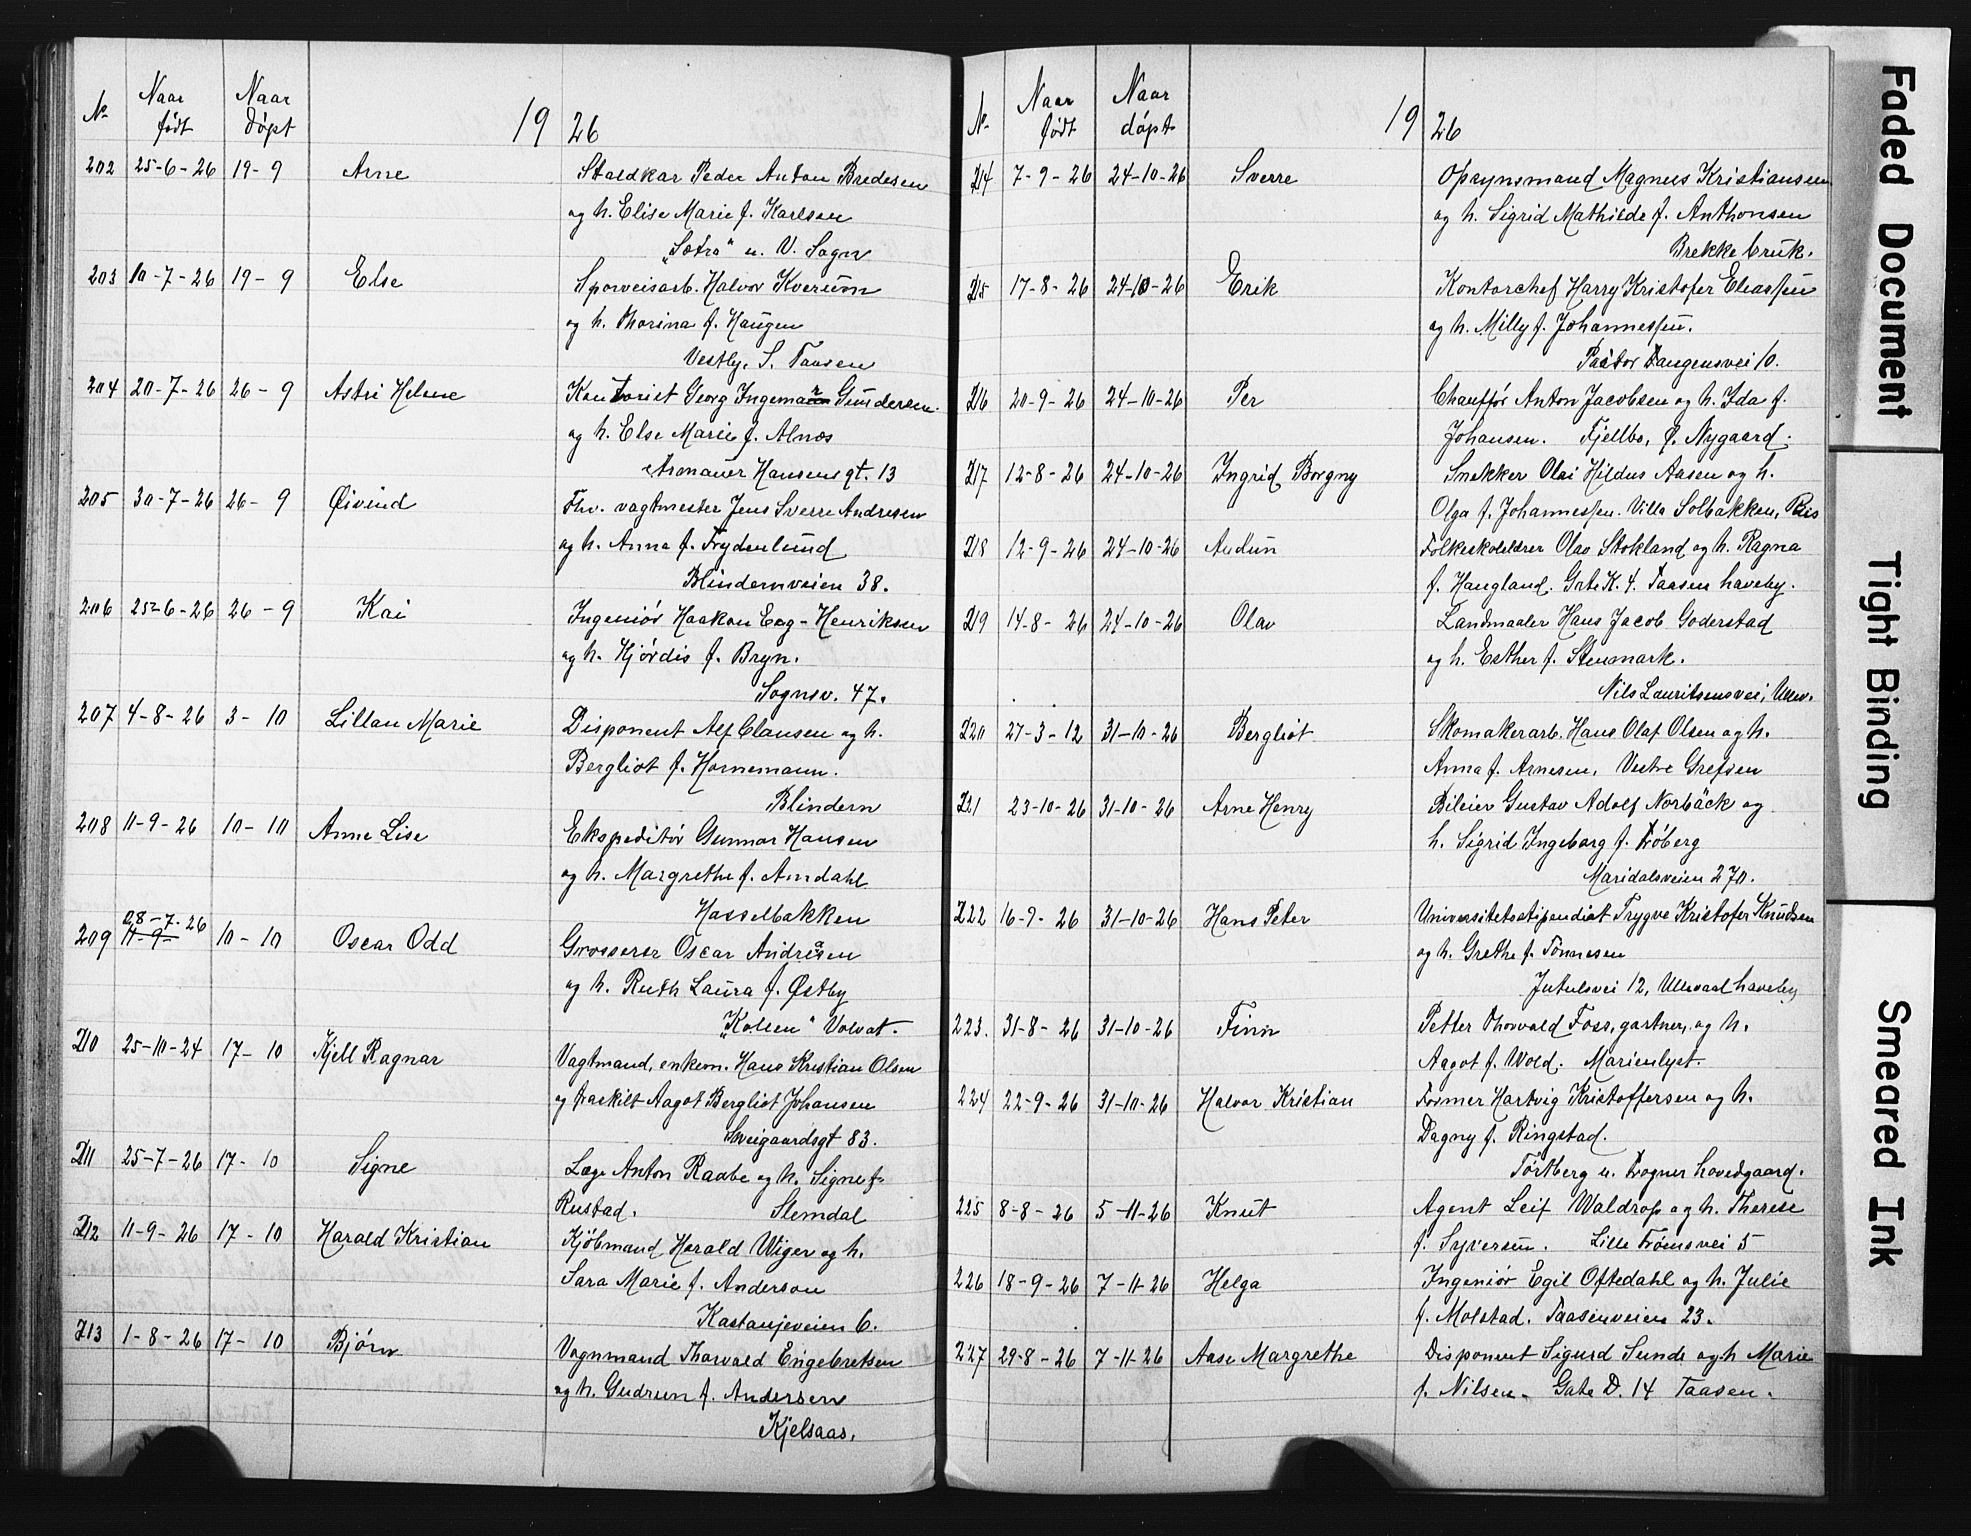 No Naar født Naar døpt 1926
202 25-6-26 19-9 Arne Staldkar Peder Anton Bredesen
og h. Elise Marie f. Karlsen
„Sætra" u. V. Sogn
203 10-7-26 19-9 Else Sporveisarb. Halvor Kverum
og h. Thorina f. Haugen
Vestby, S. Taasen
204 20-7-26 26-9 Astri Helene Kontorist Georg Ingemar Gundersen
og h. Else Marie f. Alnæs
Armauer Hansens gt. 13
205 30-7-26 26-9 Øivind Fhv. vagtmester Jens Sverre Andresen
og h. Anna f. Frydenlund
Blindernveien 38.
206 25-6-26 26-9 Kai Ingeniør Haakon Eeg-Henriksen
og h. Hjørdis f. Bryn.
Sognsv. 47.
207 4-8-26 3-10 Lillan Marie Disponent Alf Clausen og h.
Bergliot f. Hornemann.
Blindern
208 11-9-26 10-10 Anne Lise Ekspeditør Gunnar Hansen
og h. Margrethe f. Amdahl
Hasselbakken
28-7-26
209 11-9- 10-10 Oscar Odd Grosserer Oscar Andresen
og h. Ruth Laura f. Østby
„Kolsen" Volvat.
210 25-10-24 17-10 Kjell Ragnar Vagtmand, enkem. Hans Kristian Olsen
og fraskilt Aagot Bergliot Johansen
Sweigaardsgt 83.
211 25-7-26 17-10 Signe Læge Anton Raabe og h. Signe f.
Rustad. Slemdal
212 11-9-26 17-10 Harald Kristian Kjøbmand Harald Wiger og h.
Sara Marie f. Anderson
Kastanjeveien 6.
213 1-8-26 17-10 Bjørn Vognmand Thorvald Engebretsen
og h. Gudrun f. Andersen
Kjelsaas.
No Naar født Naar døpt 1926
214 7-9-26 24-10-26 Sverre Opsynsmand Magnus Kristiansen
og h. Sigrid Mathilde f. Anthonsen
Brekke bruk.
215 17-8-26 24-10-26 Erik Kontorchef Harry Kristofer Eliassen
og h. Milly f. Johannessen.
Pastor Fangensvei 10.
216 20-9-26 24-10-26 Per Chauffør Anton Jacobsen og h. Ida f.
Johansen. Fjellbo, Ø. Nygaard.
217 12-8-26 24-10-26 Ingrid Borgny Snekker Olai Hildus Aasen og h.
Olga f. Johannessen. Villa Solbakken, Ris
218 12-9-26 24-10-26 Audun Folkeskolelærer Olav Stokland og h. Ragna
f. Haugland. Gate K. 4. Taasen haveby.
219 14-8-26 24-10-26 Olav Landmaaler Hans Jacob Goderstad
og h. Esther f. Stenmark.
Nils Lauritsensvei, Ullev.
220 27-3-12 31-10-26 Bergliot Skomakerarb. Hans Olaf Olsen og h.
Anna f. Arnesen, Vestre Grefsen
221 23-10-26 31-10-26 Arne Henry Bileier Gustav Adolf Norbäck og
h. Sigrid Ingeborg f. Frøberg
Maridalsveien 270.
222 16-9-26 31-10-26 Hans Peter Universitetsstipendiat Trygve Kristofer Knudsen
og h. Grethe f. Tønnesen
Jutulsvei 12, Ullevaal haveby
223. 31-8-26 31-10-26 Finn Petter Thorvald Foss, gartner, og h.
Aagot f. Wold. Marienlyst.
224 22-9-26 31-10-26 Halvor Kristian Former Hartvig Kristoffersen og h.
Dagny f. Ringstad.
Tørtberg u. Frogner hovedgaard.
225 8-8-26 5-11-26 Knut Agent Leif Waldrop og h. Therese
f. Syversen. Lille Frøensvei 5
226 18-9-26 7-11-26 Helga Ingeniør Egil Oftedahl og h. Julie
f. Molstad. Taasenveien 23.
227 29-8-26 7-11-26 Aase Margrethe Disponent Sigurd Sunde og h Marie
f. Nilsen. Gate D. 14 Taasen.
Faded Document
Tight Binding
Smeared Ink